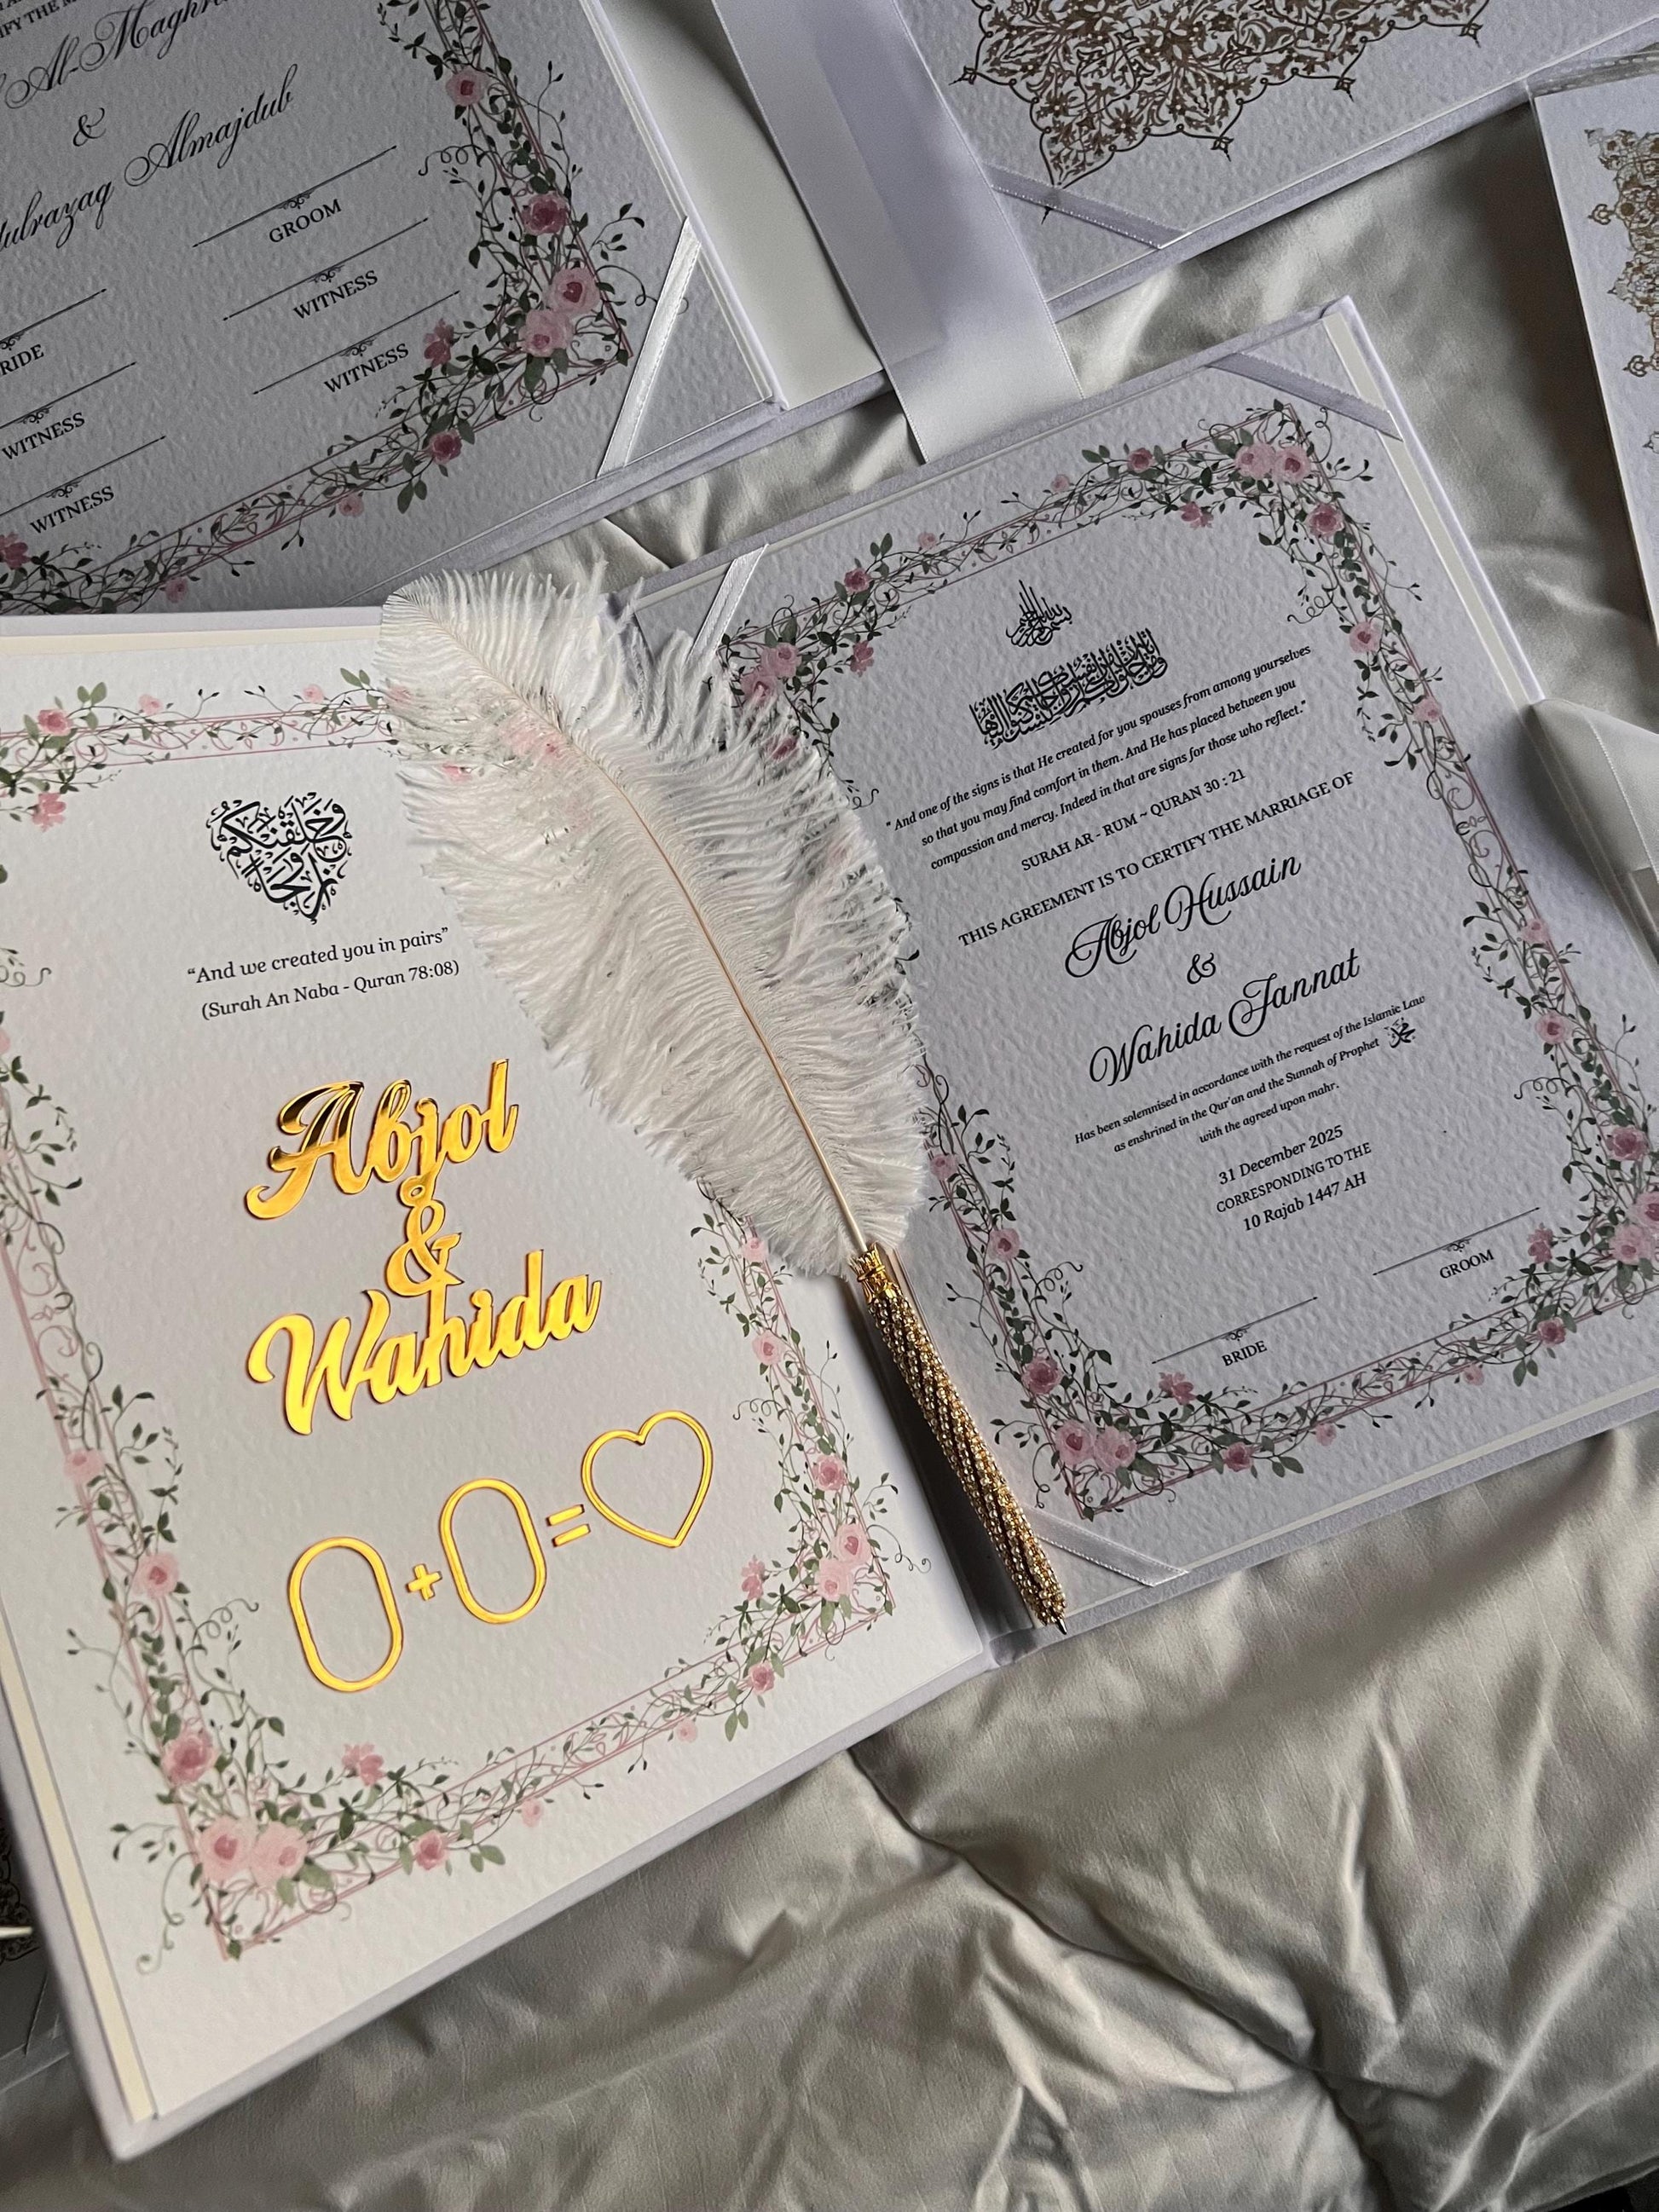 Al-Maghr
&
dulrazaq Almajdub
GROOM
WITNESS
WITNESS
RIDE
WITNESS
WITNESS
وخلقنكم
أزوجا
“And we created you in pairs”
(Surah An Naba - Quran 78:08)
Abjol
&
Wahida
0+0=
" And one of the signs is that He created for you spouses from among yourselves
so that you may find comfort in them. And He has placed between you
compassion and mercy. Indeed in that are signs for those who reflect."
SURAH AR - RUM ~ QURAN 30 : 21
THIS AGREEMENT IS TO CERTIFY THE MARRIAGE OF
Abjol Hussain
&
Wahida Jannat
Has been solemnised in accordance with the request of the Islamic Law
as enshrined in the Qur'an and the Sunnah of Prophet محمد
with the agreed upon mahr.
31 December 2025
CORRESPONDING TO THE
10 Rajab 1447 AH
GROOM
BRIDE